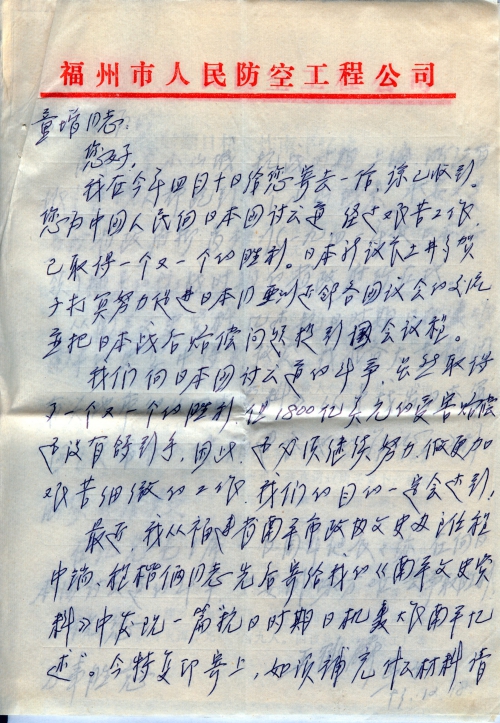 福州市人民防空工程公司
童增同志：
您好，
我在今年四月十日给您寄去一信，谅已收到。
您为中国人民向日本国讨公道，经过艰苦工作
已取得一个又一个的胜利。日本新议长土井多贺
子打算努力促进日本同亚洲近邻各国议会的交流
并把日本战后赔偿问题提到国会议程。
我们向日本国讨公道的斗争，虽然取得
了一个又一个的胜利，但1800亿美元的受害赔偿
还没有领到手，因此，还必须继续努力，做更加
艰苦细微的工作，我们的目的一定会达到。
最近，我从福建省南平市政协文史办主任程
中瑞、程楷俩同志先后寄给我的《南平文史资
料》中发现一篇抗日时期日机轰炸南平忆
述》。今特复印寄上，如须补充什么材料请